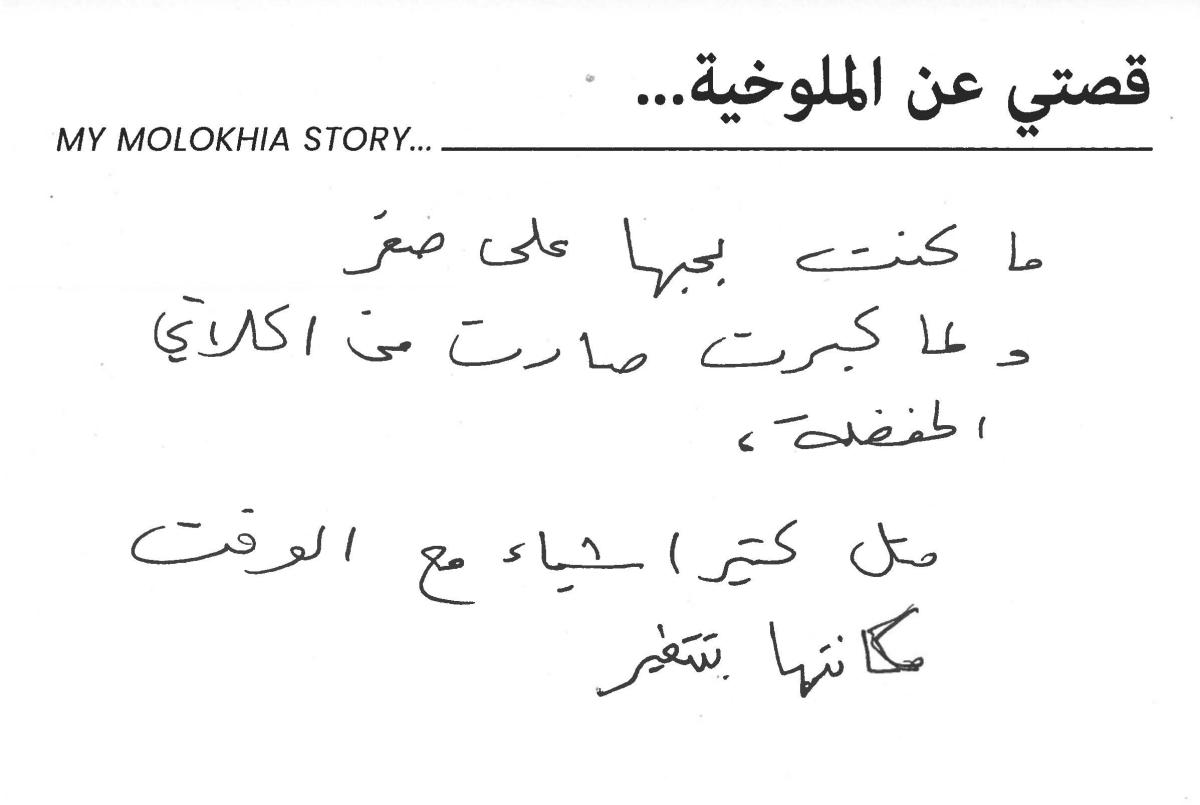 قصتي عن الملوخية...
MY MOLOKHIA STORY...
ما كنت بحبها على صغر
و لما كبرت صارت من اكلاتي
المفضلة،
متل كتير اشياء مع الوقت
مكانتها بتتغير